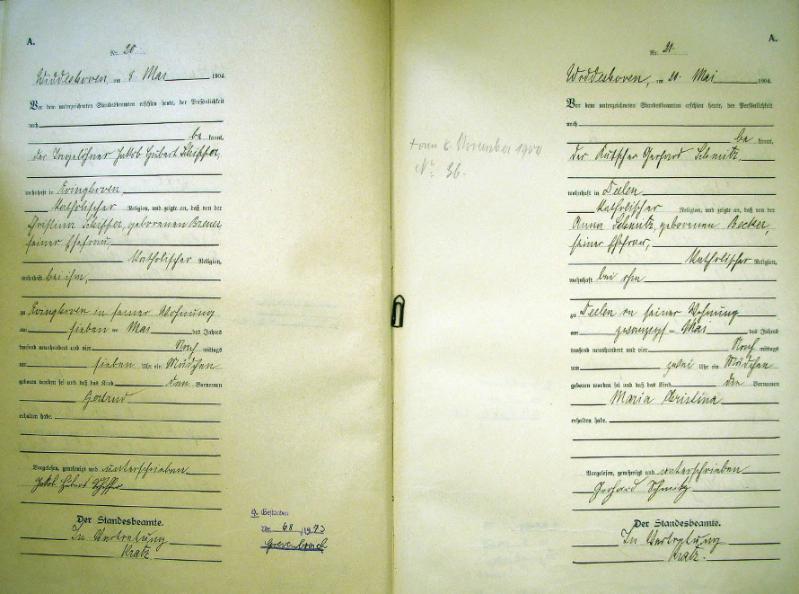 A.
Nr. 20
Widdeshoven, am 8. Mai 1904.
Vor dem unterzeichneten Standesbeamten erschien heute, der Persönlichkeit
nach
be kannt,
der Tagelöhner Jakob Hubert Schiffer,
wohnhaft in
Katholischer Religion, und zeigte an, daß von der
Christina Schiffer, geborenen
seiner Ehefrau
Katholischer Religion,
wohnhaft bei ihm,
zu in seiner Wohnung
am sieben ten Mai des Jahres
tausend neunhundert und vier Nach mittags
um sieben Uhr ein Mädchen
geboren worden sei und daß das Kind den Vornamen
Gertrud
erhalten habe.
Vorgelesen, genehmigt und unterschrieben
Jakob Hubert Schiffer
Der Standesbeamte.
In Vertretung
Kratz
Gestorben
Nr. 68/1973
Grevenbroich
A.
Nr. 21
Widdeshoven, am 21. Mai 1904.
Vor dem unterzeichneten Standesbeamten erschien heute, der Persönlichkeit
nach
be kannt,
der Kutscher Gerhard Schmitz,
wohnhaft in Deelen
Katholischer Religion, und zeigte an, daß von der
Anna Schmitz, geborenen Becker,
seiner Ehefrau,
Katholischer Religion,
wohnhaft bei ihm
zu Deelen in seiner Wohnung
am zwanzigsten Mai des Jahres
tausend neunhundert und vier Nach mittags
um zwei Uhr ein Mädchen
geboren worden sei und daß das Kind die Vornamen
Maria Christina
erhalten habe.
Vorgelesen, genehmigt und unterschrieben
Gerhard Schmitz
Der Standesbeamte.
In Vertretung
Kratz.
† am 6. November
No. 36.